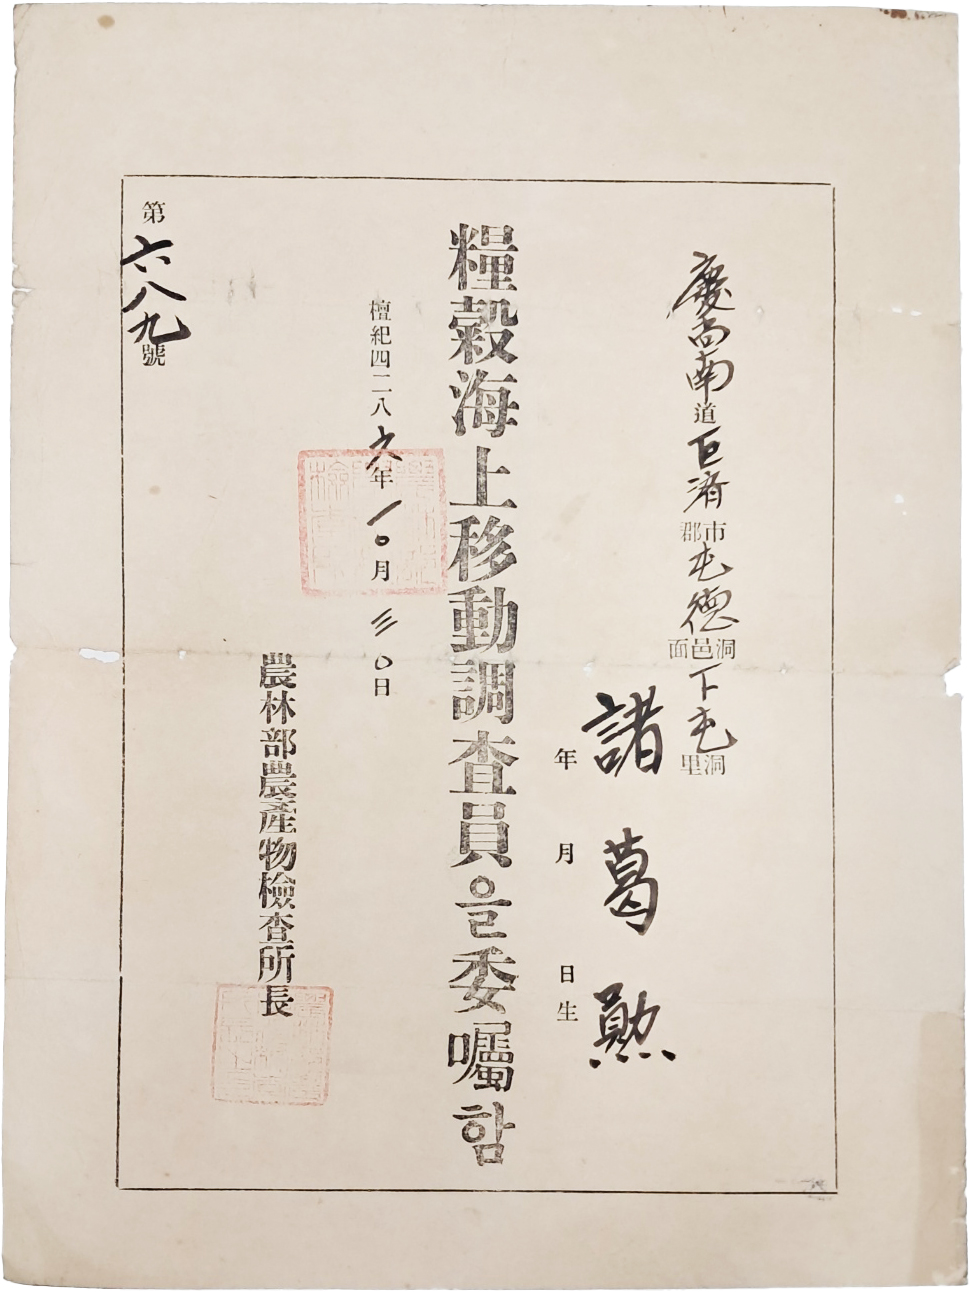 慶尚南道巨濟市郡屯德洞邑面下屯洞里
諸葛勲
年月日生
糧穀海上移動調查員을委囑함
檀紀四二八六年一〇月三〇日
農林部農產物檢查所長
第六八九號